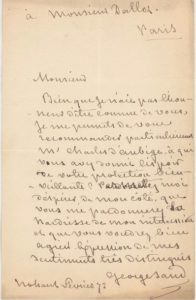 à Monsieur Dalloz
Paris
Monsieur
Bien que je n'aie pas l'hon-
neur d'être connue de vous,
je me permets de vous
recommander particulièrement
Mr Charles d'Aubigé. à qui
vous avez donné l'espoir
de votre protection bien-
veillante
de mon côté, que
vous me pardonnerez la
hardiesse de mon intervention
et que vous voudrez bien
agréer l'expression de mes
sentiments très distingués
George Sand
Nohant 73